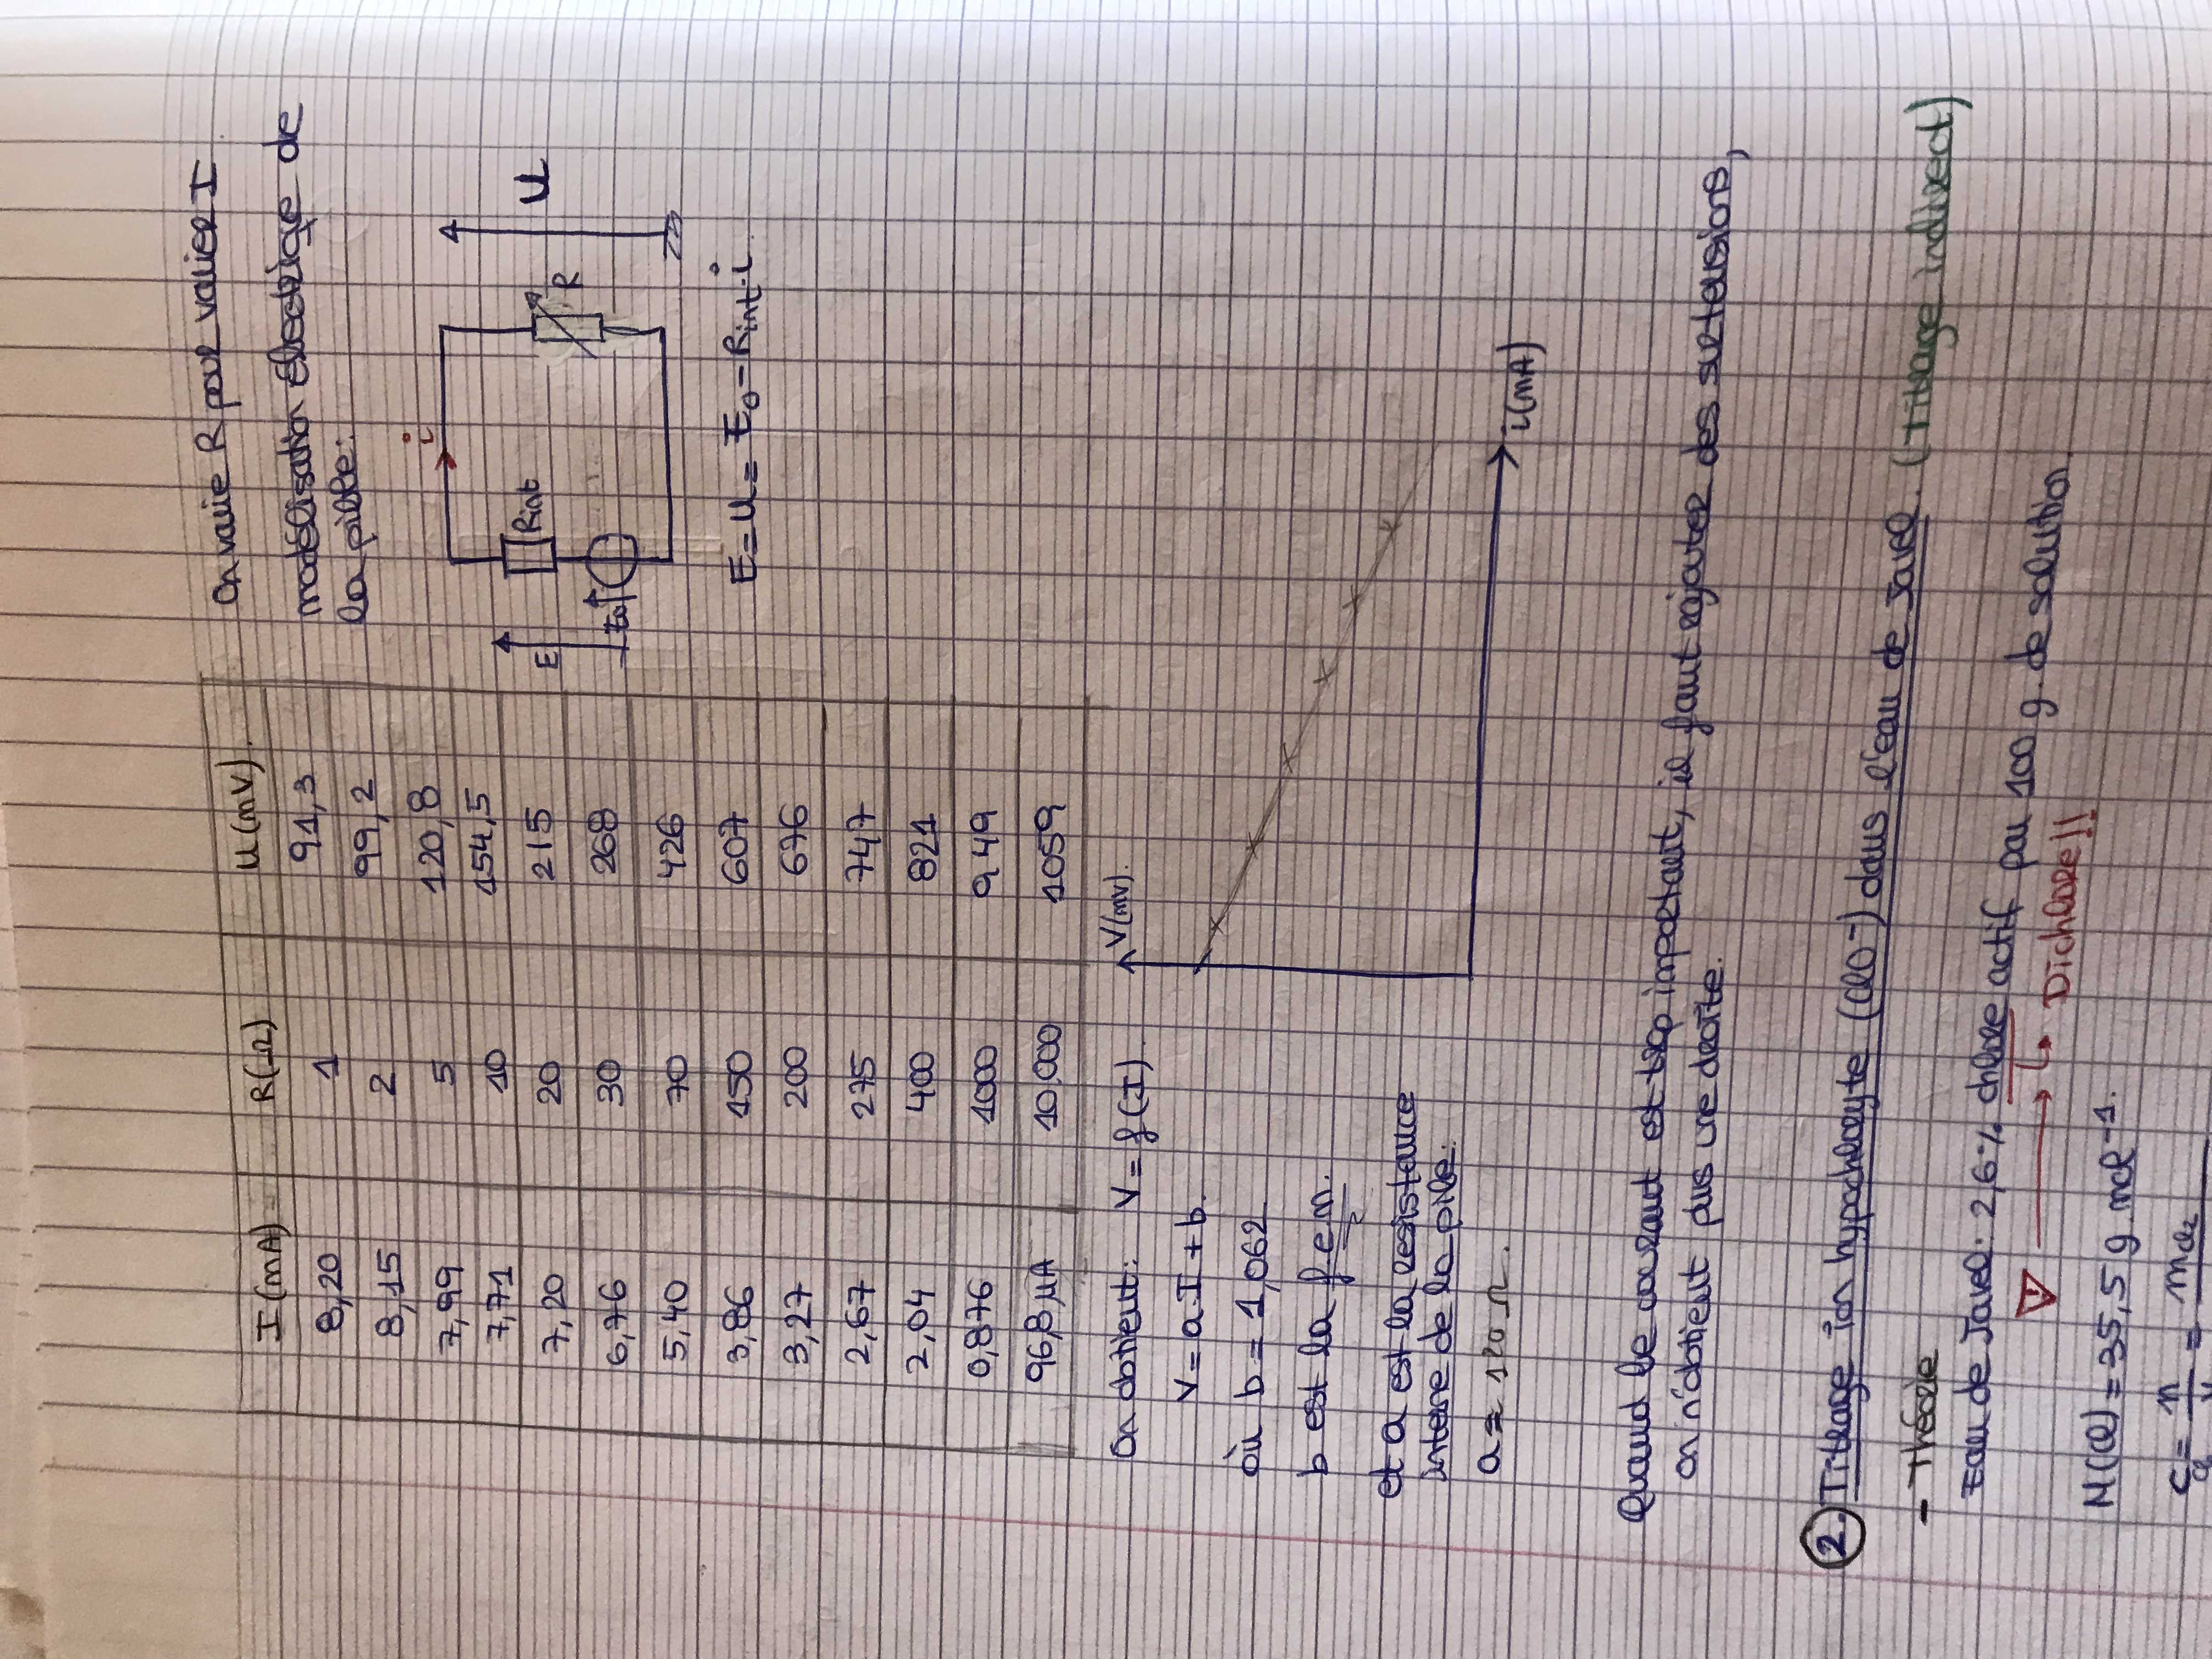 I(mA) R(Ω) U(mV).
8,20 1 91,3
8,15 2 99,2
7,99 5 120,8
7,71 10 154,5
7,20 20 215
6,76 30 268
5,40 70 426
3,86 150 607
3,27 200 676
2,67 275 747
2,04 400 821
0,876 1000 949
96,8 µA 10.000 1059
On varie R pour varier I
modélisation électrique de
la pile:
i
E
Rint
E₀
R
U
E = U = E₀ - Rint.i
On obtient: V = f(I).
V = a.I + b.
où b = 1,062
b est la f.e.m.
et a est la resistance
interne de la pile.
a = 120 Ω.
V(mV).
i(mA)
Quand le courant est trop important, il faut rajouter des surtensions,
on n'obtient plus une droite.
2. Titrage ion hypochloryte (ClO⁻) dans l'eau de Javel. (Titrage indirect)
- Théorie
Eau de Javel: 2,6% chlore actif par 100 g. de solution.
! → ↳ Dichlore!!
M(Cl) = 35,5 g.mol⁻¹.
= n = mCl₂